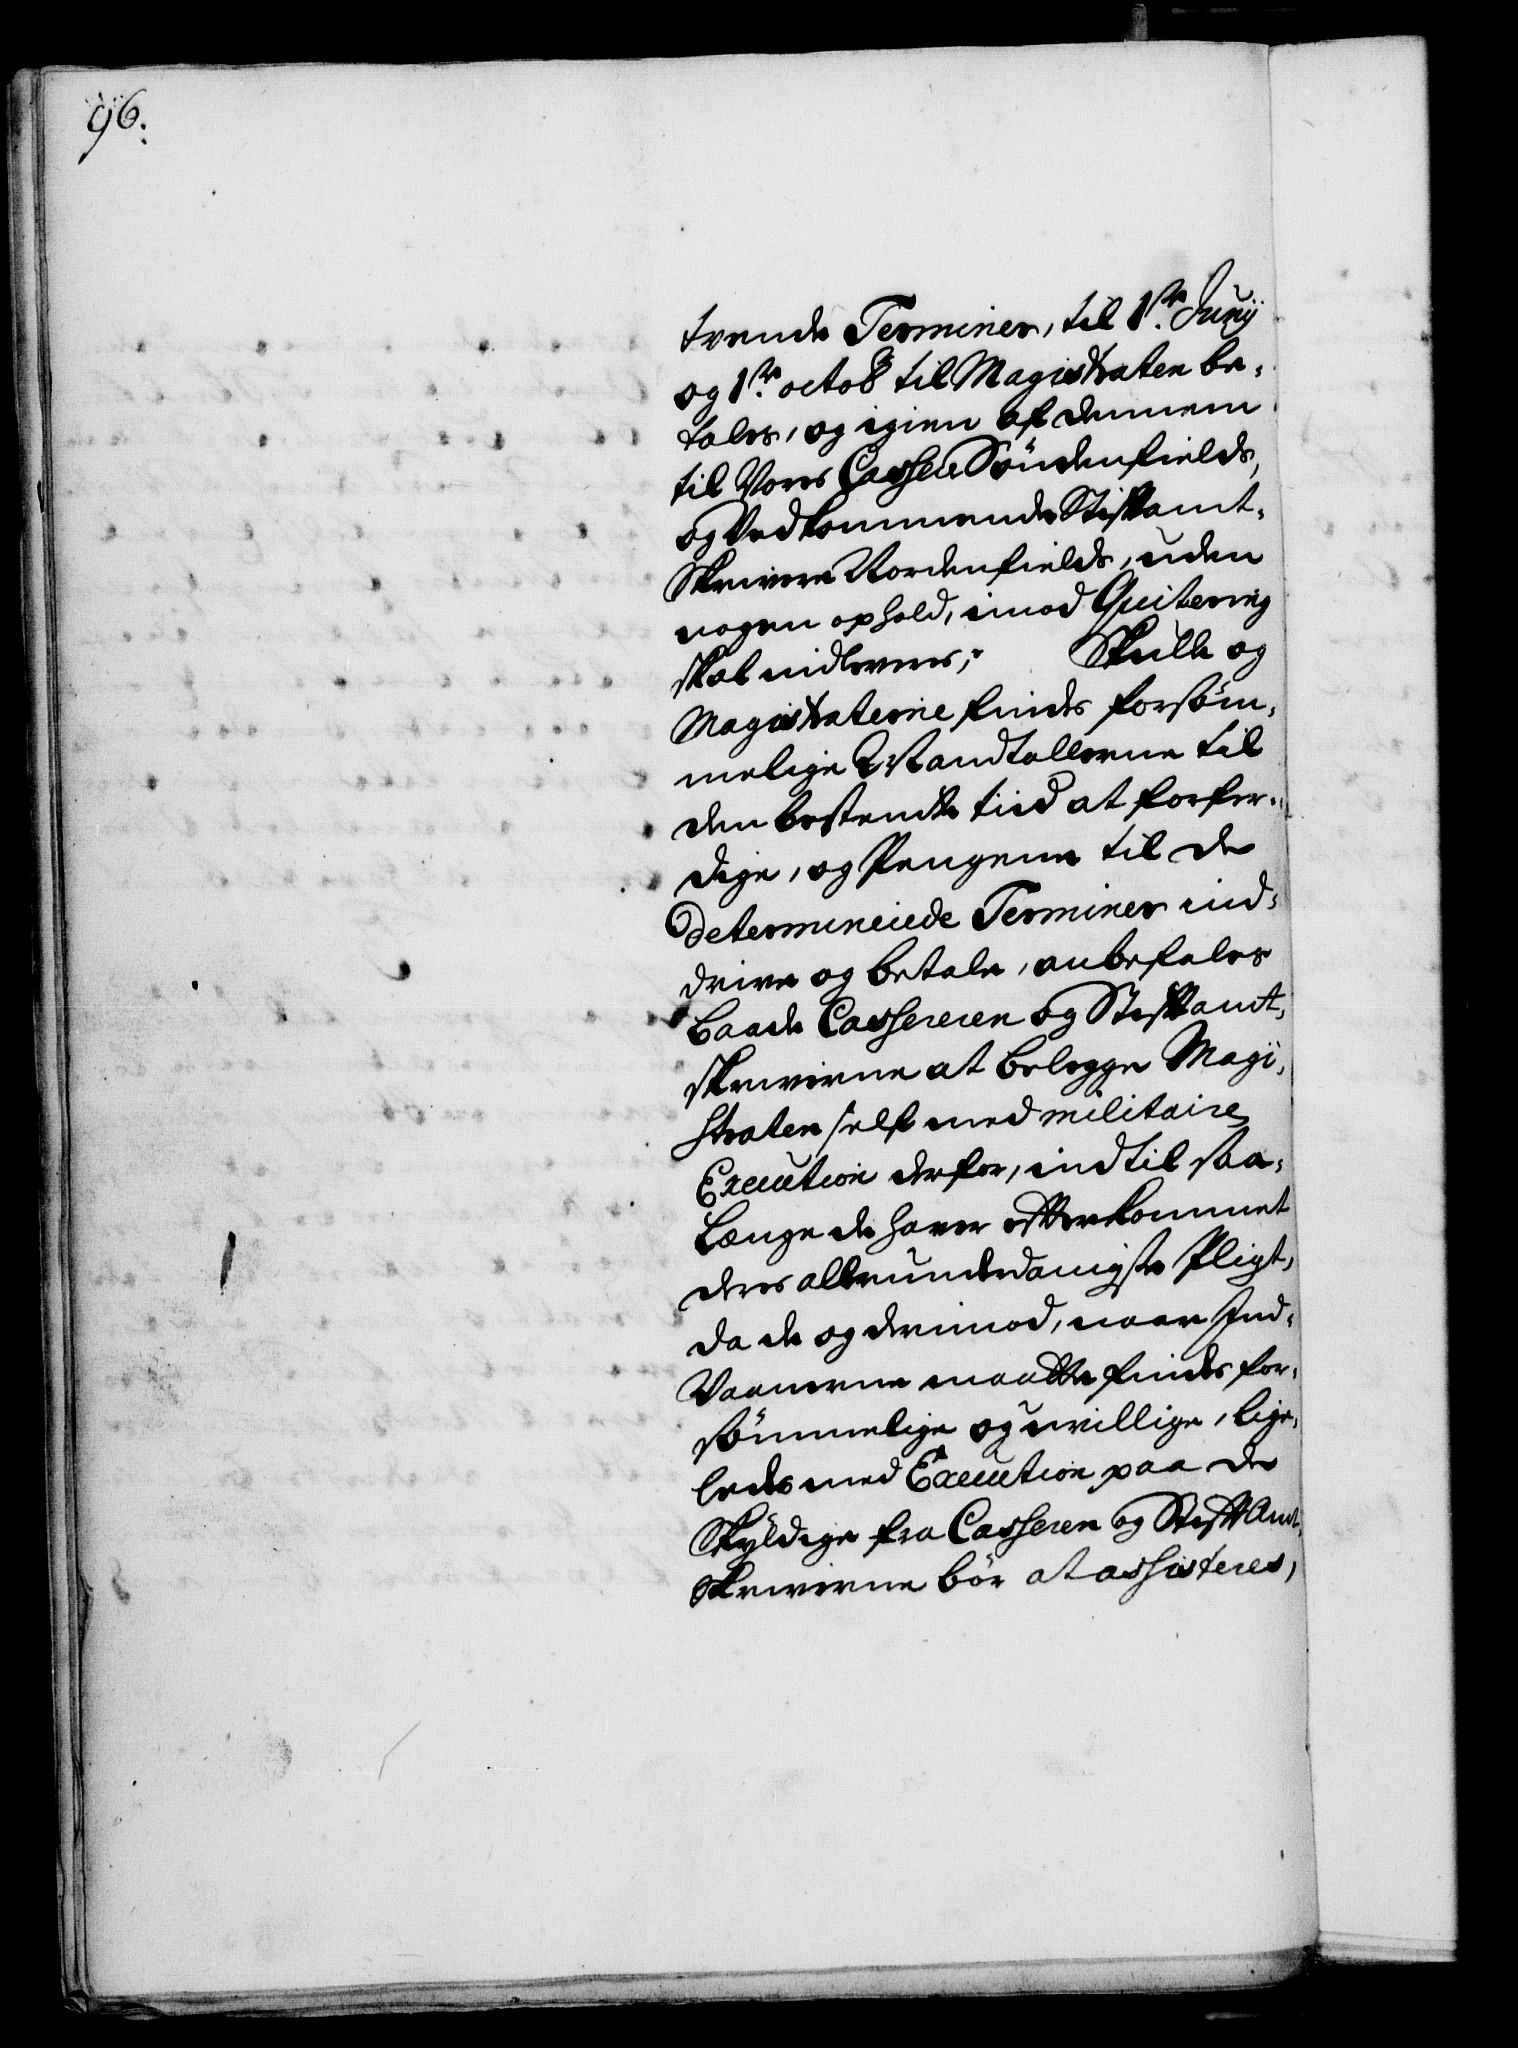 96.
tvende Terminer, til 1ste Junij
og 1ste octob til Magistraten be-
tales, og igien af dennem
til Vores Casser Söndenfields,
og Vedkommende Stiftamt-
Skrivere Nordenfields, uden
nogen ophold, imod Quitering
skal indleveres, Skulle og
Magistraterne findes forsöm-
melige Mandtallerne til
den bestemte tiid at forfer-
dige, og Pengene til de
determinerede Terminer ind-
drive og betale, anbefales
baade Casseren og Stiftamt-
skriverne at belegge Magi-
straten self med militaire
Execution derfor, indtil saa-
Længe de haver efterkommet
deres allerunderdanigste Pligt,
da de og derimod, naar Ind-
Vaanerne maatte findes for-
sömmelige og uvillige, lige-
ledes med Execution paa de
Skyldige fra Casseren og Stift Amt-
Skriverne bör at assisteres,